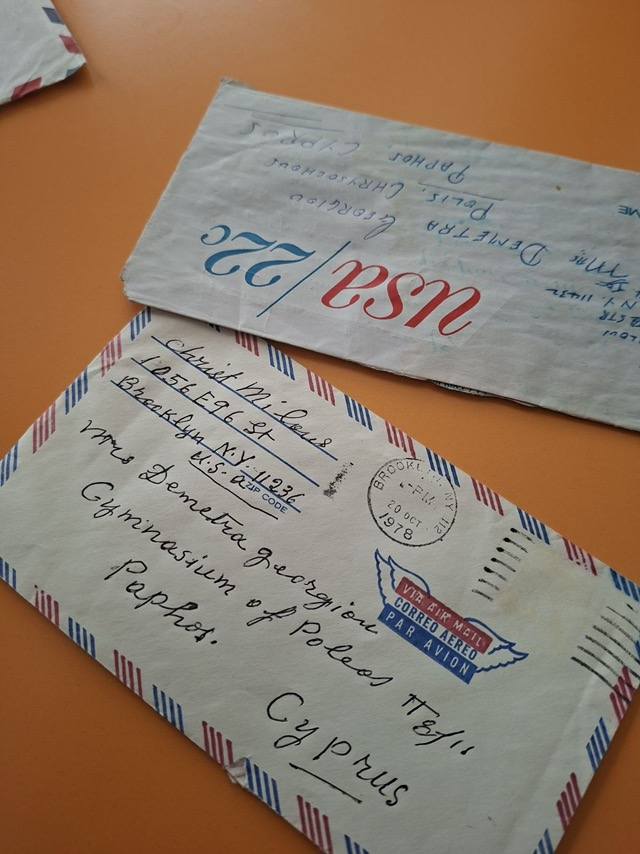 usa/22c
Mrs DEMETRA GEORGIOU
POLIS, CHRYSOCHOUS
PAPHOS, CYPRUS
NY 11432
Christ Milous
1056 E 96 St
Brooklyn N.Y. 11236
U.S.a. ZIP CODE
BROOKLYN, NY 112
PM
20 OCT
1978
VIA AIR MAIL
CORREO AEREO
PAR AVION
Mrs Demetra georgiou
Gymnasium of Poleos
Paphos.
Cyprus